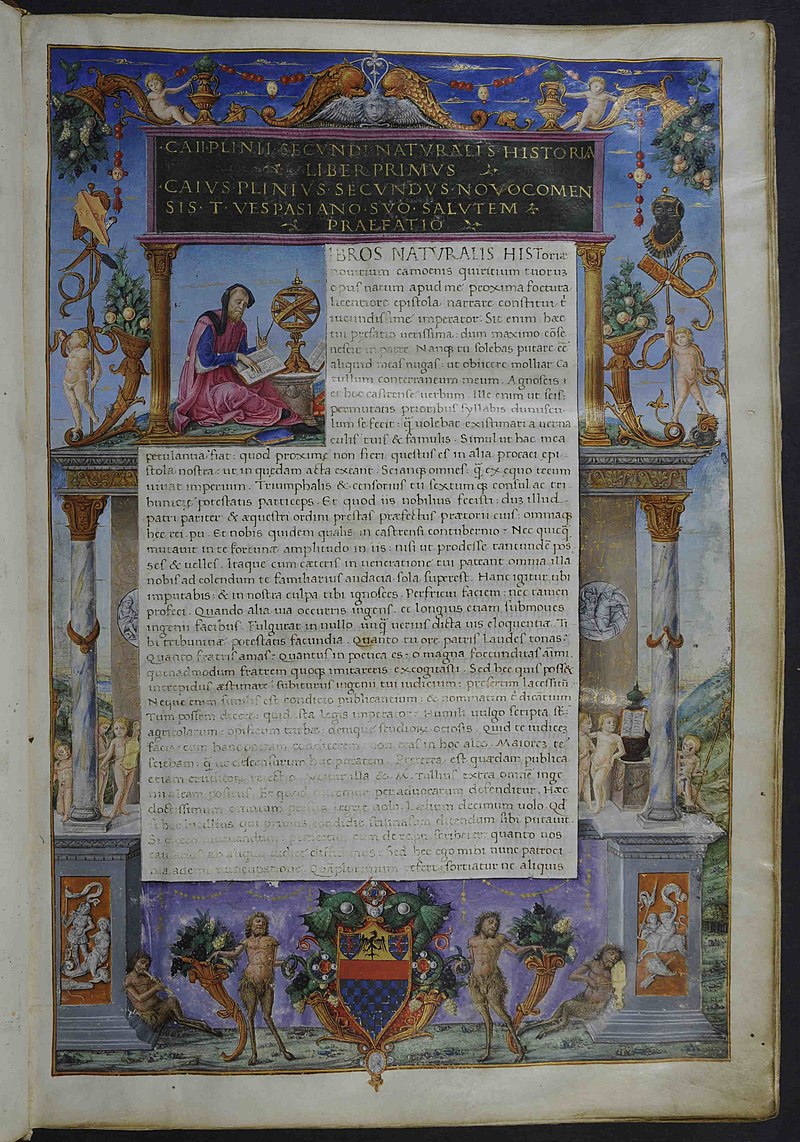 ·CAII·PLINII·SECVNDI·NATVRALIS·HISTORIA
LIBER·PRIMVS
·CAIVS·PLINIVS·SECVNDVS·NOVOCOMEN
SIS·T·VESPASIANO·SVO·SALVTEM
PRAEFATIO
IBROS NATVRALIS HISToriæ
nouitium camoenis quiritium tuorum
opus natum apud me proxima foetura
licentiore epistola narrare constitui
iucundissime imperator. Sit enim hæc
tui prefatio uerissima: dum maximo
in patre. Nanq; tu solebas putare
aliquid meas nugas: ut obiicere molliar Ca
tullum conterraneum meum. Agnoscis
et hoc castrense uerbum. Ille enim ut scis:
permutatis prioribus syllabis duriuscu
lum se fecit: q̃ uolebat existimari a uerna
culis tuis & famulis. Simul ut hac mea
petulantia fiat: quod proxime non fieri questus es in alia procaci epi
stola nostra: ut in quędam acta exeant. Sciantq; omnes: q̃ ex equo tecum
uiuat imperium. Triumphalis & censorius tu sextumq; consul ac tri
potestatis particeps. Et quod iis nobilius fecisti: dum illud
patri pariter & æquestri ordini prestas præfectus prætorii eius: omniaq;
hec rei. pu. Et nobis quidem qualis in castrensi contubernio? Nec quicq̃
mutauit in te fortunæ amplitudo in iis: nisi ut prodesse tantundẽ pos
ses & uelles. Itaque cum cæteris in ueneratione tui pateant omnia illa
nobis ad colendum te familiarius audacia sola superest. Hanc igitur tibi
imputabis: & in nostra culpa tibi ignosces. Perfricui faciem: nec tamen
profeci. Quando alia uia occurris ingens. et longius etiam submoues
ingenii facibus. Fulgurat in nullo unq̃ uerius dicta uis eloquentiæ. Ti
bi tribunitiæ potestatis facundia. Quanto tu ore patris laudes tonas?
Quanto fratris amas? Quantus in poetica es? o magna foecunditas aimi.
quemadmodum fratrem quoq; imitareris excogitasti. Sed hec quis possit
intrepidus æstimare: subiturus ingenii tui iudicium: presertim lacessitũ
Neque enim similis est conditio publicantium: & nominatim tibi dicantium
Tum possem dicere: quid ista legis imperator? Humili uulgo scripta sũt:
agricolarum: opificum turbæ: denique studiorum ociosis. Quid te iudicem
facis: cum hanc operam condicerem: non eras in hoc albo. Maiorem te
sciebam: q̃ ut descensurum huc putarem. Preterea est quædam publica
etiam eruditorum reiectio. Vtitur illa & M. Tullius extra omnẽ inge
nii aleam positus. Et quod miremur per aduocatum defenditur. Hæc
doctissimum omnium Persium legere nolo. Lælium decimum uolo. Qđ
si hoc Lucilius qui primus condidit stili nasum dicendum sibi putauit.
quanto nos
Sed hec ego mihi nunc patroci
Quamplurimum refert: sortiatur ne aliquis